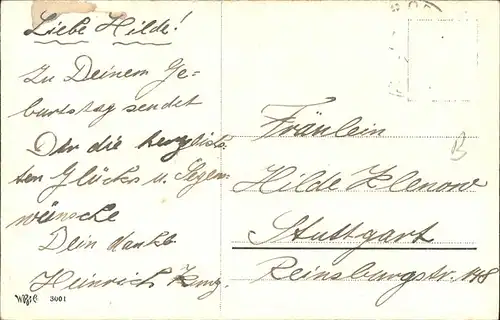 Liebe Hilde!
Zu Deinem Ge=
burtstag sendet
Dir die herzlichs-
ten Glücks u. Segens
wünsche
Dein dankb.
Heinrich
WR&C 3001
Fräulein
Hilde Klenow
Stuttgart
Reinsburgstr. 148
B